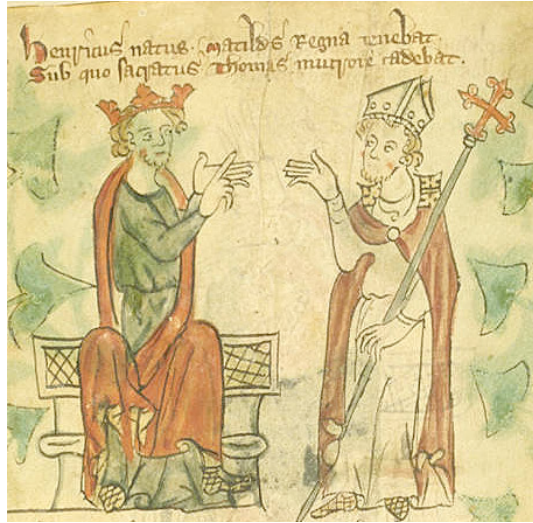 Henricus natus. Matildis Regna tenebat.
Sub quo sacratus Thomas mucrone cadebat.